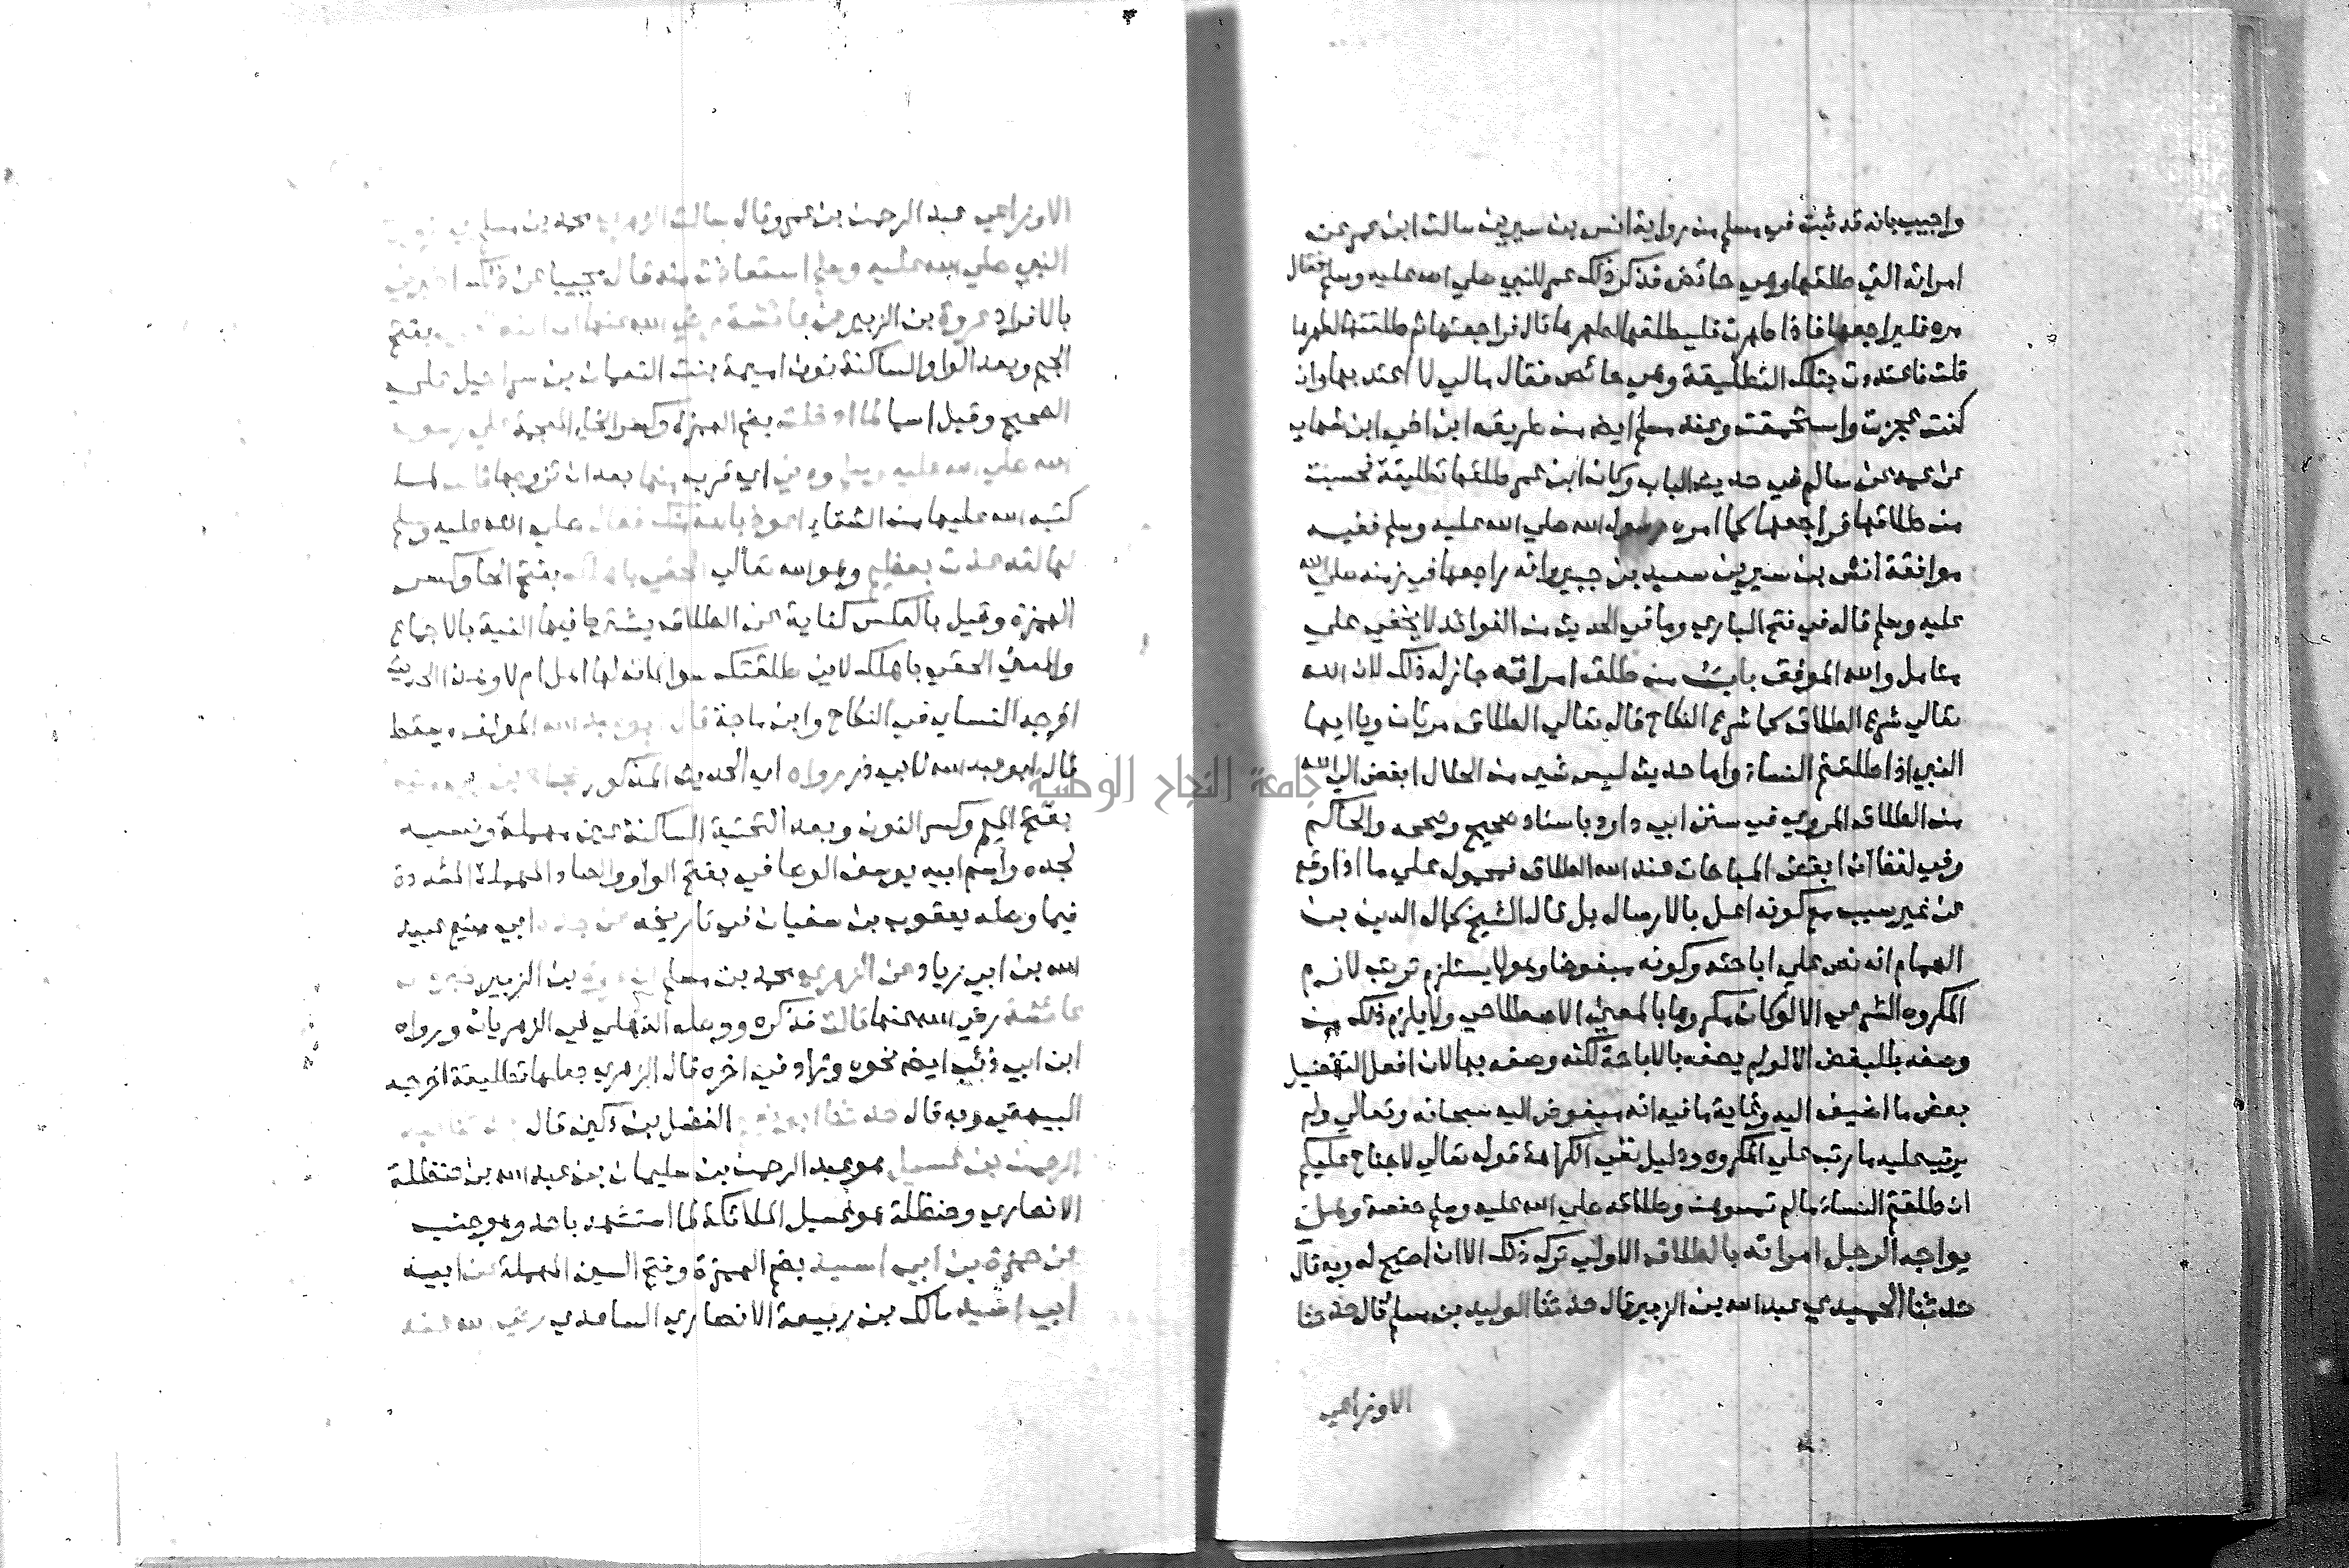 واجيب بانه قد ثبت في مسلم من رواية انس بن سيرين سالت ابن عمر عن
امراته التي طلقها وهي حائض فذكر ذلك عمر للنبي صلي الله عليه وسلم فقال
مره فليراجعها فاذا طهرت فليطلقها لطهرها قال فراجعتها ثم طلقتها لطهرها
قلت فاعتددت بتلك التطليقة وهي حائض فقال مالي لا اعتد بها وان
كنت عجزت واستحمقت وعند مسلم ايضا من طريق ابن اخي ابن شهاب
عن عمه عن سالم في حديث الباب وكان ابن عمر طلقها تطليقة فحسبت
من طلاقها فراجعها كما امره رسول الله صلي الله عليه وسلم ففيه
موافقة انس بن سيرين سعيد بن جبير وانه راجعها في زمنه صلي الله
عليه وسلم قاله في فتح الباري وما في الحديث من الفوائد لا يخفي علي
متامل والله الموفق باب من طلق امراته جاز له ذلك لان الله
تعالي شرع الطلاق كما شرع النكاح قال تعالي الطلاق مرتان ويا ايها
النبي اذا طلقتم النساء واما حديث ليس شيء من الحلال ابغض الي الله
من الطلاق المروي في سنن ابي داود باسناد صحيح وصححه والحاكم
وفي لفظ ان ابغض المباحات عند الله الطلاق فمحمول علي ما اذا وقع
عن غير سبب مع كونه اعل بالارسال بل قال الشيخ كمال الدين بن
الهمام انه نص علي اباحته وكونه مبغوضا وهو لا يستلزم ترتب لازم
المكروه الشرعي الا لو كان مكروها بالمعني الاصطلاحي ولا يلزم ذلك من
وصفه بالبغض الا لو لم يصفه بالاباحة لكنه وصفه بها لان افعل التفضيل
بعض ما اضيف اليه وغاية ما فيه انه مبغوض اليه سبحانه وتعالي ولم
يرتب عليه ما رتب علي المكروه ودليل نفي الكراهة قوله تعالي لا جناح عليكم
ان طلقتم النساء ما لم تمسوهن وطلاقه صلي الله عليه وسلم حفصة وهل
يواجه الرجل امراته بالطلاق الاولي ترك ذلك الا ان احتيج له وبه قال
حدثنا الحميدي عبد الله بن الزبير قال حدثنا الوليد بن مسلم قال حدثنا
الاوزاعي
الاوزاعي عبد الرحمن بن عمرو قال سالت الزهري محمد بن مسلم
النبي صلي الله عليه وسلم استعاذت منه قال مجيبا عن ذلك اخبرني
بالافراد عروة بن الزبير عن عائشة رضي الله عنها ان ابنة بفتح
الجيم وبعد الواو الساكنة نون اميمة بنت النعمان بن سراحيل علي
الصحيح وقيل اسما لما ادخلت بضم الهمزة وكسر الخاء المعجمة علي رسول
الله صلي الله عليه وسلم ودني اي قرب منها بعد ان تزوجها قالت لما
كتب الله عليها من الشقاء اعوذ بالله منك فقال صلي الله عليه وسلم
لها لقد عذت بعظيم وهو الله تعالي الحقي باهلك بفتح الحا وكسر
الهمزة وقيل بالعكس كناية عن الطلاق يشترط فيها النية بالاجماع
والمعني الحقي باهلك لاني طلقتك سوا كان لها اهل ام لا وهذا الحديث
اخرجه النساي في النكاح وابن ماجة قال ابو عبد الله المؤلف وسقط
قال ابو عبد الله لابي ذر رواه اي الحديث المذكور حجاج بن
بفتح الميم وكسر النون وبعد التحتية الساكنة عين مهملة ونسبه
لجده واسم ابيه يوسف الوصافي بفتح الواو والصاد المهملة المشددة
فيما وصله يعقوب بن سفيان في تاريخه عن جده ابي منيع عبيد
الله بن ابي زياد عن الزهري محمد بن مسلم ان عروة بن الزبير
عائشة رضي الله عنها قالت فذكره ووصله الذهلي في الزهريات ورواه
ابن ابي ذئب ايضا نحوه وزاد في اخره قال الزهري جعلها تطليقة اخرجه
البيهقي وبه قال حدثنا ابو نعيم الفضل بن دكين قال
الرحمن بن غسيل هو عبد الرحمن بن سليمان بن عبد الله بن حنظلة
الانصاري وحنظلة هو غسيل الملائكة لما استشهد باحد وهو جنب
عن حمزة بن ابي اسيد بضم الهمزة وفتح السين المهملة عن ابيه
ابي اسيد مالك بن ربيعة الانصاري الساعدي رضي الله عنه
جامعة النجاح الوطنية